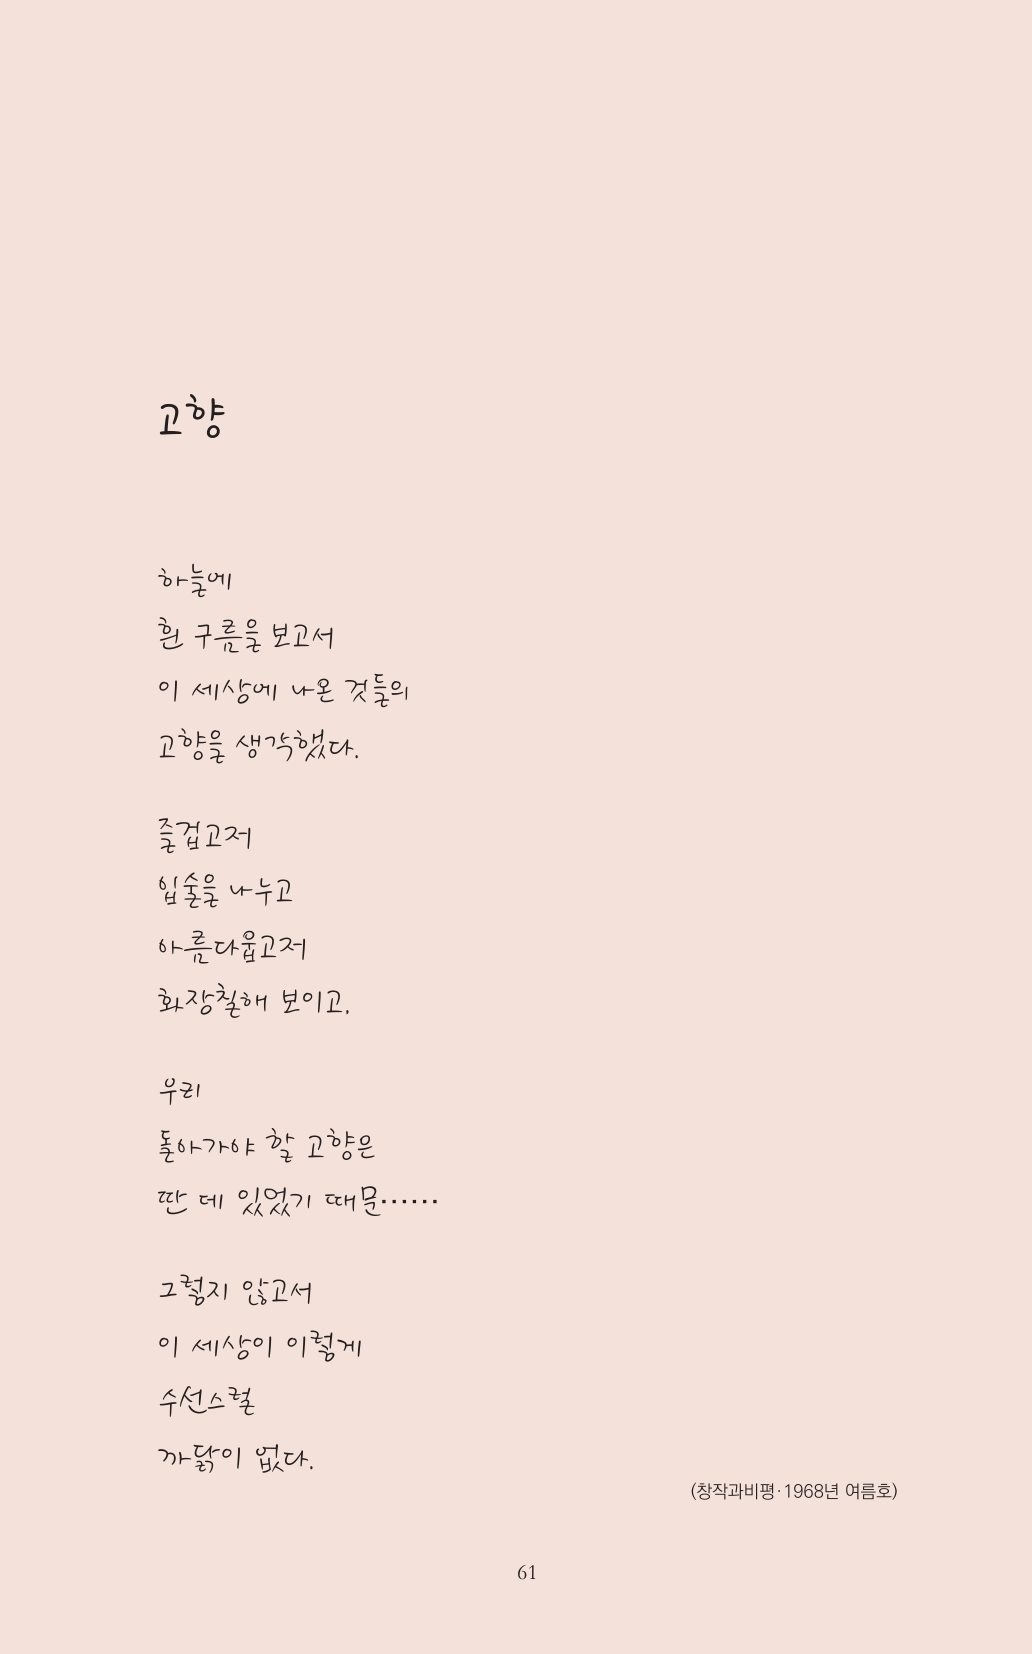 고향
하늘에
흰 구름을 보고서
이 세상에 나온 것들의
고향을 생각했다.
즐겁고저
입술을 나누고
아름다웁고저
화장칠해 보이고,
우리
돌아가야 할 고향은
딴 데 있었기 때문……
그렇지 않고서
이 세상이 이렇게
수선스럴
까닭이 없다.
(창작과비평·1968년 여름호)
61